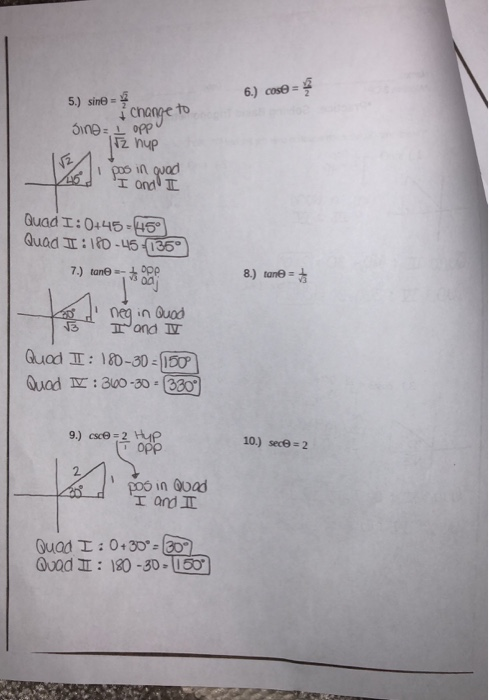 5.) sinθ = √2/2
↓ change to
sinθ = 1/√2 opp hyp
√2
45°
1
pos in quad
I and II
Quad I: 0+45 = 45°
Quad II: 180 - 45 = 135°
6.) cosθ = √2/2
7.) tanθ = - 1/√3 opp adj
30°
1
√3
neg in Quad
II and IV
Quad II: 180-30 = 150°
Quad IV: 360-30 = 330°
8.) tanθ = 1/√3
9.) cscθ = 2/1 Hyp opp
2
30°
1
pos in Quad
I and II
Quad I: 0+30° = 30°
Quad II: 180-30 = 150°
10.) secθ = 2